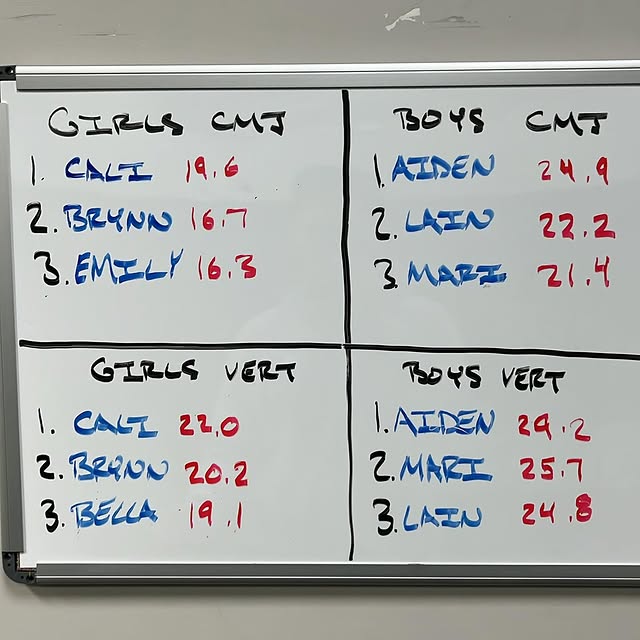 GIRLS CMJ
1. CALI 19.6
2. BRYNN 16.7
3. EMILY 16.3
BOYS CMJ
1. AIDEN 24.9
2. LAIN 22.2
3. MARI 21.4
GIRLS VERT
1. CALI 22.0
2. BRYNN 20.2
3. BELLA 19.1
BOYS VERT
1. AIDEN 29.2
2. MARI 25.7
3. LAIN 24.8